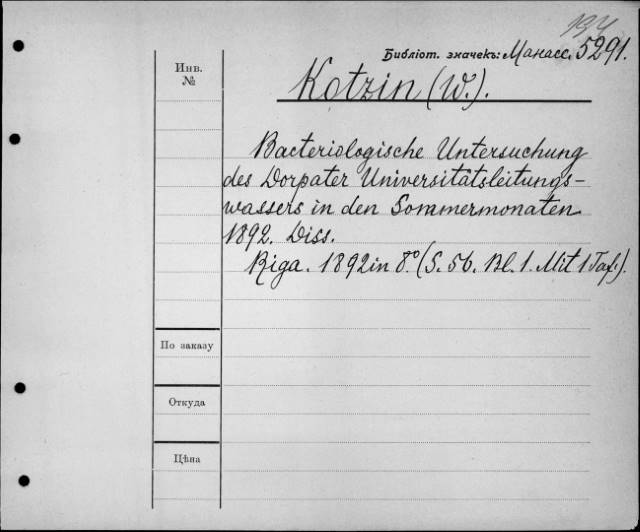 194
Библіот. значекъ: Манасс. 5291.
Инв.
№
Kotzin (W.).
Bacteriologische Untersuchung
des Dorpater Universitätsleitungs-
wassers in den Sommermonaten
1892. Diss.
Riga. 1892 in 8.° (S. 56. Bl. 1. Mit 1 Taf.).
По заказу
Откуда
Цѣна